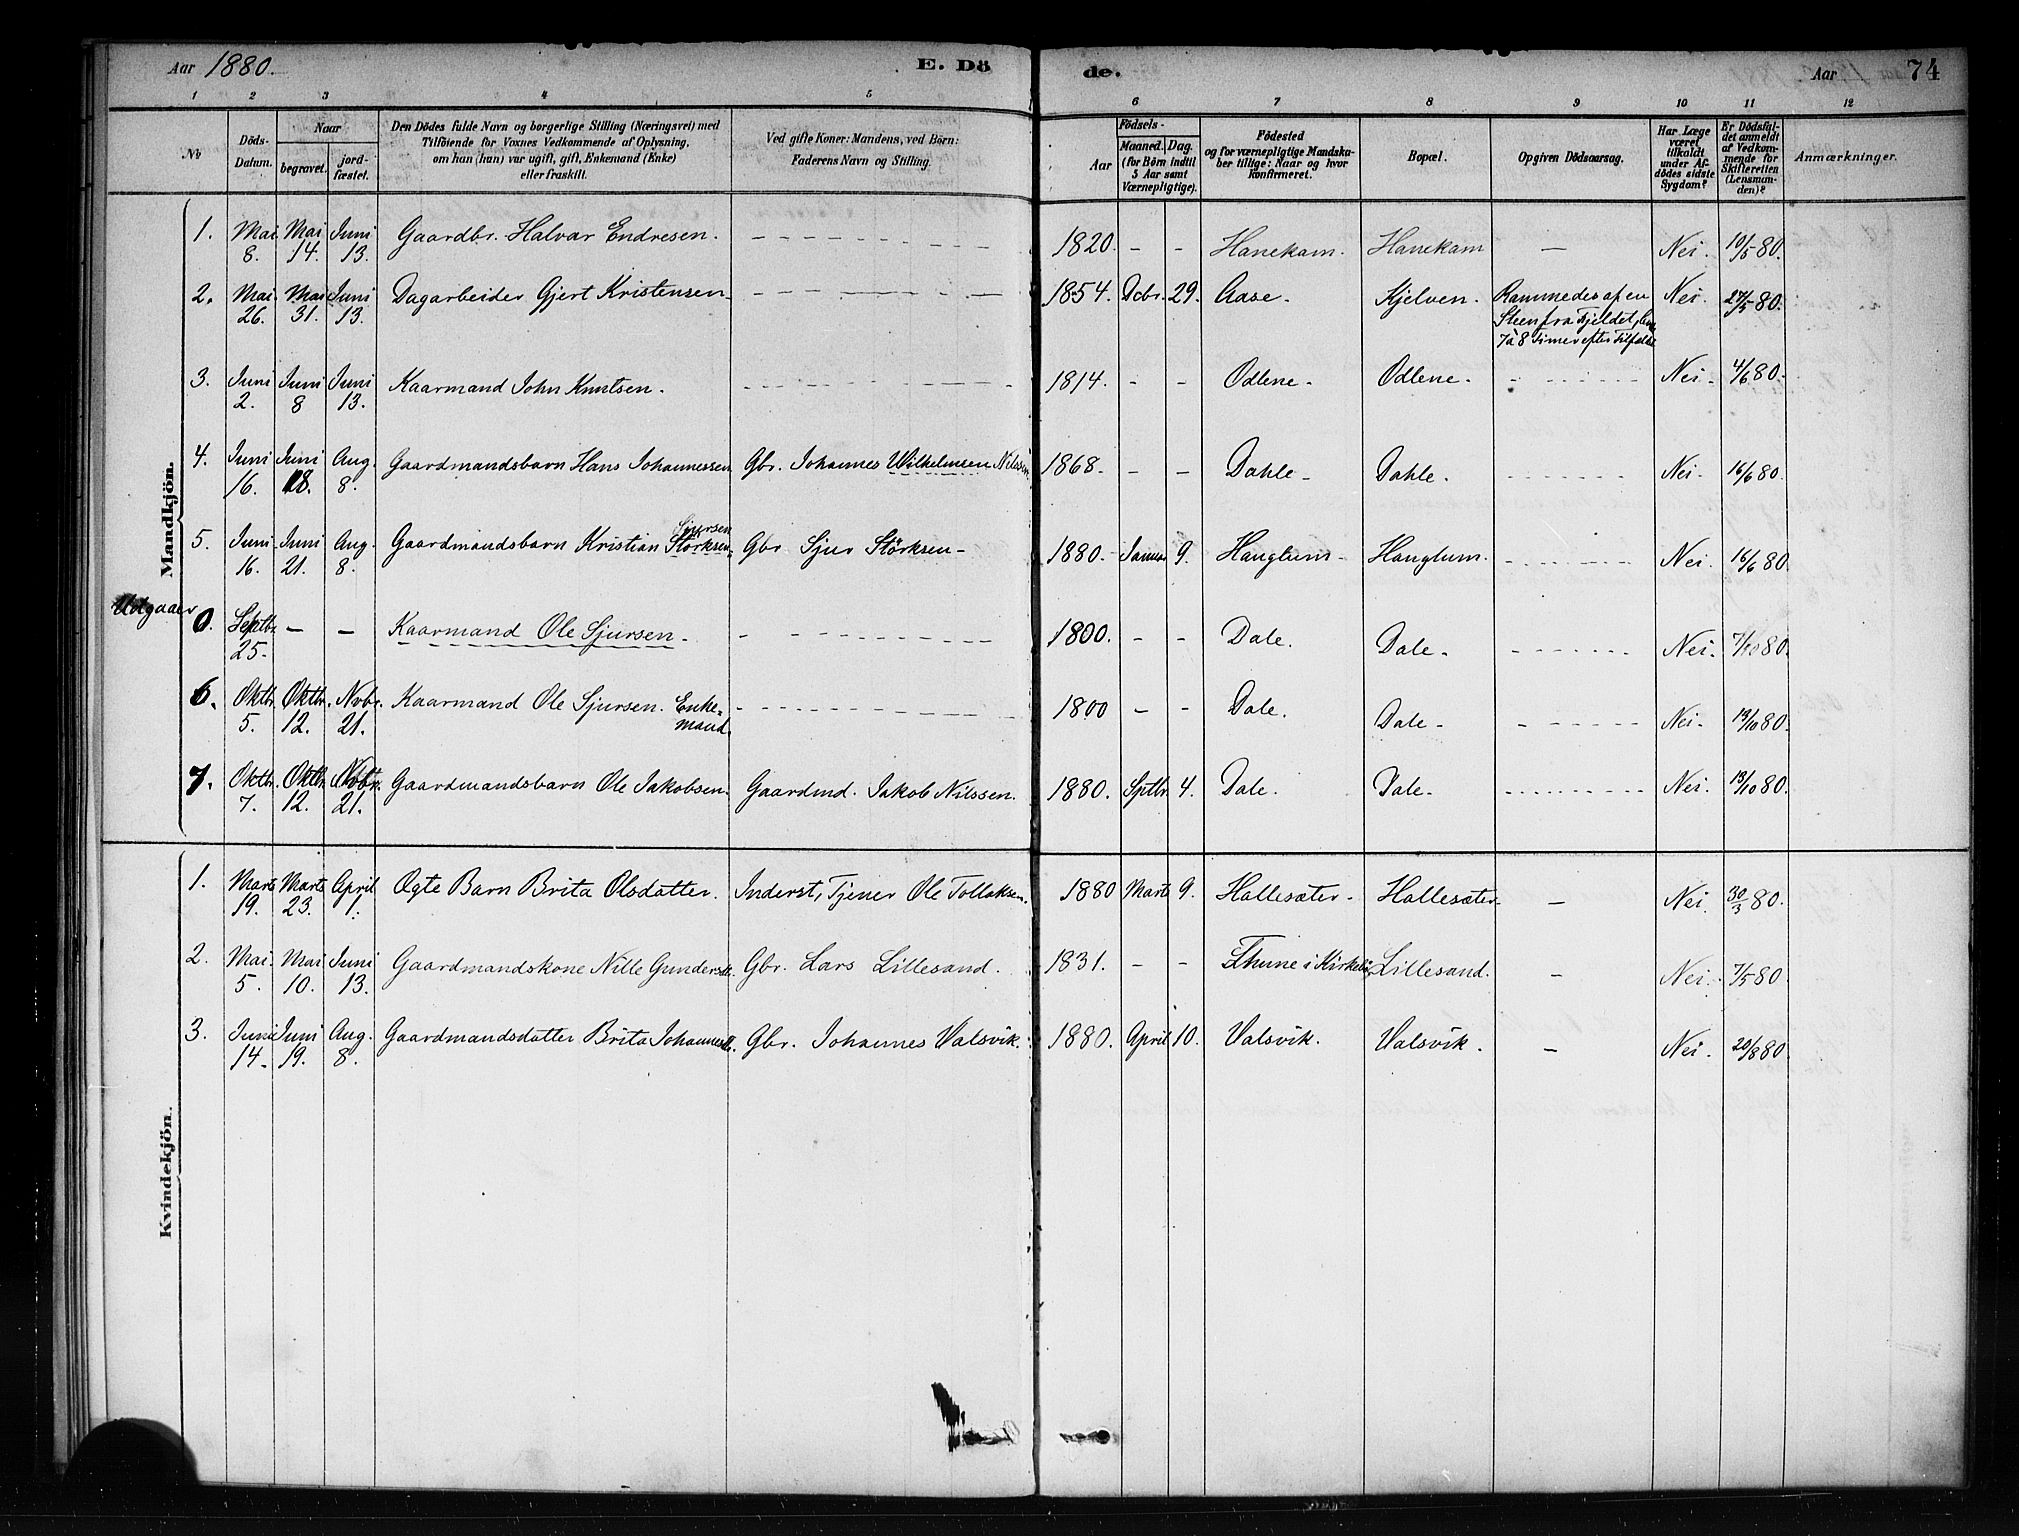 Aar 1880. E. Dö de. Aar 74
1 2 3 4 5 6 7 8 9 10 11 12
No Döds-Datum. Naar begravet. jord-fæstet. Den Dödes fulde Navn og borgerlige Stilling (Næringsvei) med Tilföiende for Voxnes Vedkommende af Oplysning, om han (hun) var ugift, gift, Enkemand (Enke) eller fraskilt. Ved gifte Koner: Mandens, ved Börn: Faderens Navn og Stilling. Födsels- Aar Maaned. Dag. (for Börn indtil 5 Aar samt Værnepligtige). Födested og for værnepligtige Mandska-ber tillige: Naar og hvor Konfirmeret. Bopæl. Opgiven Dödsaarsag. Har Læge været tilkaldt under Af-dödes sidste Sygdom? Er Dödsfal-det anmeldt af Vedkom-mende for Skifteretten (Lensman-den)? Anmærkninger.
Mandkjön.
1. Mai 8. Mai 14. Juni 13. Gaardbr. Halvar Endresen. 1820. - - Hanekam. Hanekam — Nei. 10/5 80.
2. Mai 26. Mai 31. Juni 13. Dagarbeider Gjert Kristensen 1854. Dcbr. 29. Aase. Kjelven. Rammedes af en Steen fra Fjeldet, 7 à 8 Timer efter Tilfældet Nei. 27/5 80.
3. Juni 2. Juni 8 Juni 13. Kaarmand John Knutsen. 1814. - - Odlene. Odlene. Nei. 4/6 80.
4. Juni 16. Juni 18. Aug. 8. Gaardmandsbarn Hans Johannessen Gbr. Johannes Wilhelmsen Nilssen 1868. - - Dahle. Dahle. Nei. 16/6 80.
5. Juni 16. Juni 21. Aug. 8. Gaardmandsbarn Kristian Störksen Sjursen Gbr. Sjur Störksen 1880. Januar 9. Hauglum. Hauglum. Nei. 16/6 80
Udgaaer 0. Septbr. 25. — — Kaarmand Ole Sjursen. 1800. - - Dale. Dale. Nei. 7/10 80.
6. Oktbr. 5. Oktbr. 12. Nvbr. 21. Kaarmand Ole Sjursen. Enke=mand. 1800 - - Dale. Dale. Nei. 13/10 80.
7. Oktbr. 7. Oktbr. 12. Nvbr. 21. Gaardmandsbarn Ole Jakobsen. Gaardmd. Jakob Nilssen. 1880. Sptbr. 4. Dale. Dale. Nei. 13/10 80.
Kvindekjön.
1. Marts 19. Marts 23. April 1. Ægte Barn Brita Olsdatter. Inderst, Tjener Ole Tollaksen. 1880 Marts 9. Hallesæter. Hallesæter. — Nei. 30/3 80.
2. Mai. 5. Mai 10. Juni 13. Gaardmandskone Nille Gundersdt. Gbr. Lars Lillesand. 1831. - - Thune i Kirkebö Lillesand. — Nei. 7/5 80
3. Juni 14. Juni 19. Aug. 8. Gaardmandsdatter Brita Johannesdt. Gbr. Johannes Valsvik. 1880. April 10. Valsvik. Valsvik. — Nei. 20/8 80